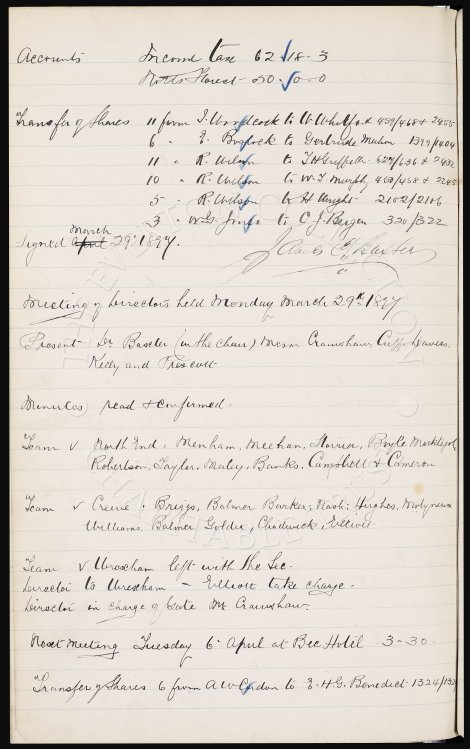 Accounts Income Tax 62-18-3
Notts Forest 20-0-0
Transfer of Shares 11 from J. Woodcock to W. 459/468 + 2455
6 " E. Bostock to Gertrude 1399/1404
11 " R. Wilson to T H 629/638 + 2432
10 " R. Wilson to W. J. Murphy
5 " R. Wilson to H Wright 2102/2106
3 " W. G. Jones to C. J. Berger 320/322
Signed April March 29th 1897.
James C Baxter
Meeting of Directors held Monday March 29th 1897
Present Dr Baxter (in the chair) Messrs Crawshaw, Cuff, Davies,
Kelly and Prescott
Minutes read & confirmed.
Team v North End. Menham, Meehan, Storrier, Boyle
Robertson, Taylor, Maley, Banks, Campbell & Cameron
Team v Crewe: Briggs, Balmer Barker; Nash; Hughes, Molyneux
Williams. Balmer, Goldie, Chadwick, Elliott
Team v Wrexham left with the Sec.
Director to Wrexham – Elliott take charge.
Director in charge of Gate Mr Crawshaw.
Next Meeting Tuesday 6th April at Bee Hotel 3-30.
Transfer of Shares 6 from A W to E. H. G. Benedict 1324/